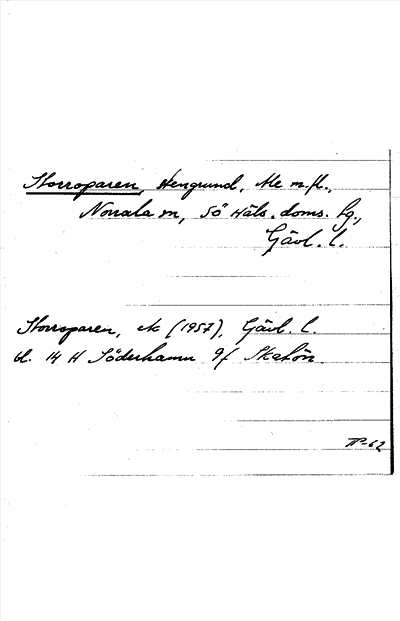 Storroparen, stengrund, Ale m.fl.,
Norrala sn, Sö Häls. doms. lg.,
Gävl. l.
Storroparen, ek (1957), Gävl. l.
bl. 14 H Söderhamn 9f Skatön
TP-62